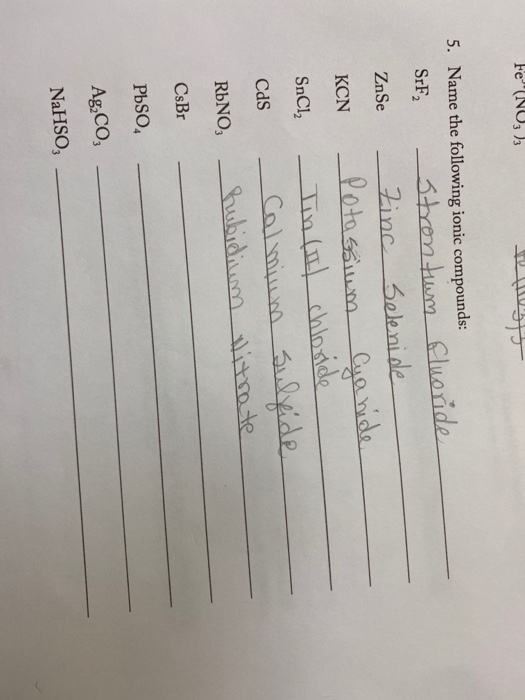 Fe³⁺(NO₃)₃
5. Name the following ionic compounds:
SrF₂ Strontium fluoride
ZnSe Zinc Selenide
KCN Potassium Cyanide
SnCl₂ Tin (II) chloride
CdS Calmium Sulfide
RbNO₃ Rubidium Nitrate
CsBr
PbSO₄
Ag₂CO₃
NaHSO₃